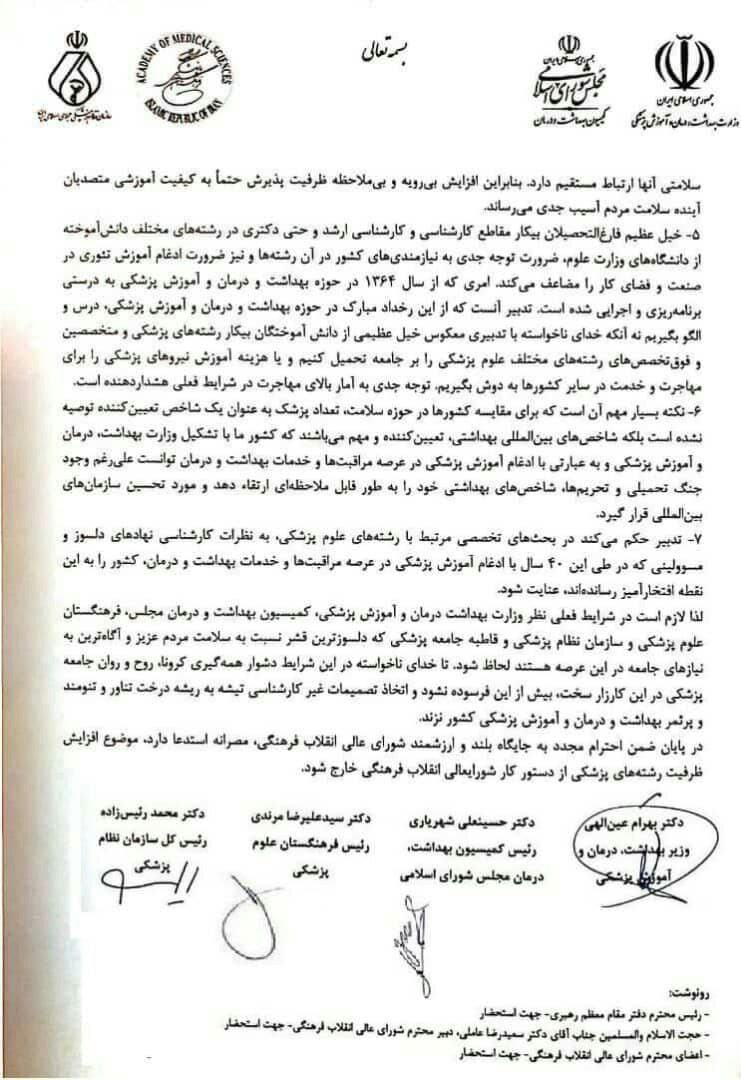 بسمه تعالی
جمهوری اسلامی ایران
وزارت بهداشت، درمان و آموزش پزشکی
جمهوری اسلامی ایران
مجلس شورای اسلامی
کمیسیون بهداشت و درمان
ACADEMY OF MEDICAL SCIENCES
ISLAMIC REPUBLIC OF IRAN
سازمان نظام پزشکی جمهوری اسلامی ایران
سلامتی آنها ارتباط مستقیم دارد. بنابراین افزایش بی‌رویه و بی‌ملاحظه ظرفیت پذیرش حتماً به کیفیت آموزشی متصدیان
آینده سلامت مردم آسیب جدی می‌رساند.
۵- خیل عظیم فارغ‌التحصیلان بیکار مقاطع کارشناسی و کارشناسی ارشد و حتی دکتری در رشته‌های مختلف دانش‌آموخته
از دانشگاه‌های وزارت علوم، ضرورت توجه جدی به نیازمندی‌های کشور در آن رشته‌ها و نیز ضرورت ادغام آموزش تئوری در
صنعت و فضای کار را مضاعف می‌کند. امری که از سال ۱۳۶۴ در حوزه بهداشت و درمان و آموزش پزشکی به درستی
برنامه‌ریزی و اجرایی شده است. تدبیر آنست که از این رخداد مبارک در حوزه بهداشت و درمان و آموزش پزشکی، درس و
الگو بگیریم نه آنکه خدای ناخواسته با تدبیری معکوس خیل عظیمی از دانش آموختگان بیکار رشته‌های پزشکی و متخصصین
و فوق‌تخصص‌های رشته‌های مختلف علوم پزشکی را بر جامعه تحمیل کنیم و یا هزینه آموزش نیروهای پزشکی را برای
مهاجرت و خدمت در سایر کشورها به دوش بگیریم. توجه جدی به آمار بالای مهاجرت در شرایط فعلی هشداردهنده است.
۶- نکته بسیار مهم آن است که برای مقایسه کشورها در حوزه سلامت، تعداد پزشک به عنوان یک شاخص تعیین‌کننده توصیه
نشده است بلکه شاخص‌های بین‌المللی بهداشتی، تعیین‌کننده و مهم می‌باشند که کشور ما با تشکیل وزارت بهداشت، درمان
و آموزش پزشکی و به عبارتی با ادغام آموزش پزشکی در عرصه مراقبت‌ها و خدمات بهداشت و درمان توانست علی‌رغم وجود
جنگ تحمیلی و تحریم‌ها، شاخص‌های بهداشتی خود را به طور قابل ملاحظه‌ای ارتقاء دهد و مورد تحسین سازمان‌های
بین‌المللی قرار گیرد.
۷- تدبیر حکم می‌کند در بحث‌های تخصصی مرتبط با رشته‌های علوم پزشکی، به نظرات کارشناسی نهادهای دلسوز و
مسوولینی که در طی این ۴۰ سال با ادغام آموزش پزشکی در عرصه مراقبت‌ها و خدمات بهداشت و درمان، کشور را به این
نقطه افتخارآمیز رسانده‌اند، عنایت شود.
لذا لازم است در شرایط فعلی نظر وزارت بهداشت درمان و آموزش پزشکی، کمیسیون بهداشت و درمان مجلس، فرهنگستان
علوم پزشکی و سازمان نظام پزشکی و قاطبه جامعه پزشکی که دلسوزترین قشر نسبت به سلامت مردم عزیز و آگاه‌ترین به
نیازهای جامعه در این عرصه هستند لحاظ شود. تا خدای ناخواسته در این شرایط دشوار همه‌گیری کرونا، روح و روان جامعه
پزشکی در این کارزار سخت، بیش از این فرسوده نشود و اتخاذ تصمیمات غیر کارشناسی تیشه به ریشه درخت تناور و تنومند
و پرثمر بهداشت و درمان و آموزش پزشکی کشور نزند.
در پایان ضمن احترام مجدد به جایگاه بلند و ارزشمند شورای عالی انقلاب فرهنگی، مصرانه استدعا دارد، موضوع افزایش
ظرفیت رشته‌های پزشکی از دستور کار شورایعالی انقلاب فرهنگی خارج شود.
دکتر بهرام عین‌الهی
وزیر بهداشت، درمان و
آموزش پزشکی
دکتر حسینعلی شهریاری
رئیس کمیسیون بهداشت،
درمان مجلس شورای اسلامی
دکتر سیدعلیرضا مرندی
رئیس فرهنگستان علوم
پزشکی
دکتر محمد رئیس‌زاده
رئیس کل سازمان نظام
پزشکی
رونوشت:
- رئیس محترم دفتر مقام معظم رهبری- جهت استحضار
- حجت الاسلام والمسلمین جناب آقای دکتر سعیدرضا عاملی، دبیر محترم شورای عالی انقلاب فرهنگی- جهت استحضار
- اعضای محترم شورای عالی انقلاب فرهنگی- جهت استحضار